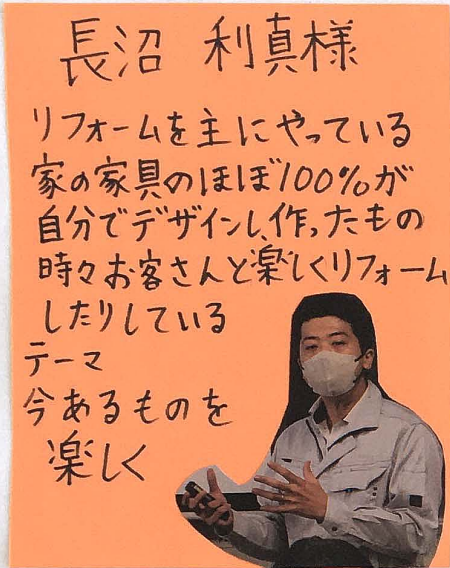 長沼 利真様
リフォームを主にやっている
家の家具のほぼ100%が
自分でデザインし、作ったもの
時々お客さんと楽しくリフォーム
したりしている
テーマ
今あるものを
楽しく